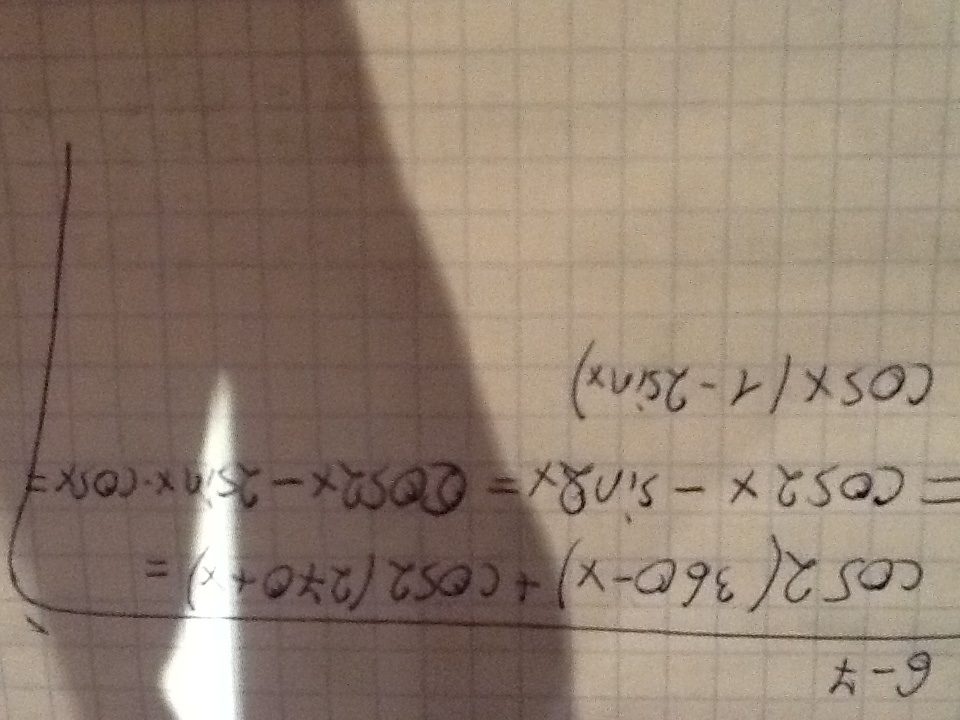 6-7
cos2(360-x)+cos2(270+x)=
=cos2x-sin2x=cos2x-2sinx·cosx=
cosx(1-2sinx)